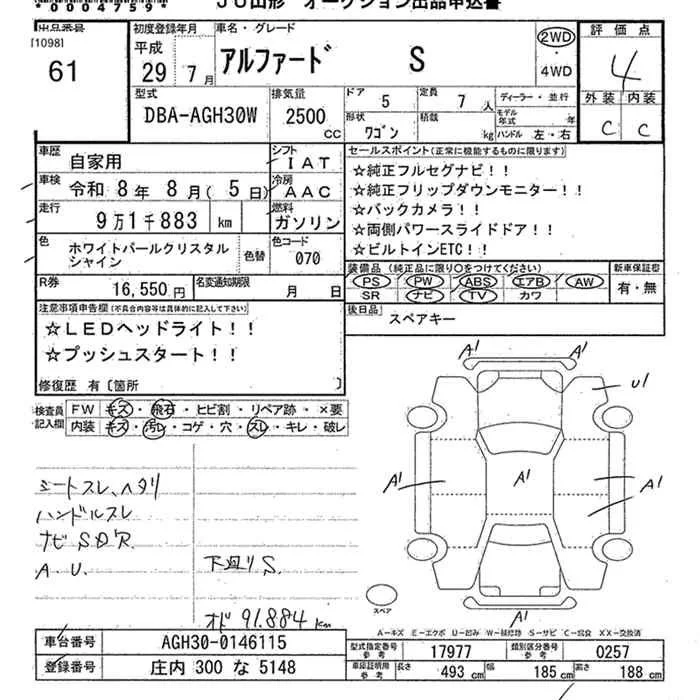 *0004759*
JU山形 オークション出品申込書
出品番号
[1098]
61
初度登録年月
平成
29年 7月
車名・グレード
アルファード S
2WD
・
4WD
評価点
4
外装 内装
C C
型式
DBA-AGH30W
排気量
2500
CC
ドア
5
定員
7人
形状
ワゴン
積載
kg
ディーラー・並行
モデル年式 年
ハンドル 左・右
車歴
自家用
シフト
IAT
車検
令和 8年 8月( 5日)
冷房
AAC
走行
9万1千883 km
燃料
ガソリン
色
ホワイトパールクリスタル
シャイン
色替
色コード
070
R券
16,550円
名変通知期限
月 日
セールスポイント(正常に機能するものに限ります)
☆純正フルセグナビ!!
☆純正フリップダウンモニター!!
☆バックカメラ!!
☆両側パワースライドドア!!
☆ビルトインETC!!
装備品(純正品に限り○をつけてください)
PS PW ABS エアB AW
SR ナビ TV カワ
新車保証書
有・無
後日品
スペアキー
注意事項申告欄(不具合内容等は具体的に記入して下さい)
☆LEDヘッドライト!!
☆プッシュスタート!!
修復歴 有〔箇所 〕
検査員
記入欄
FW キズ・飛石・ヒビ割・リペア跡・×要
内装 キズ・汚レ・コゲ・穴・スレ・キレ・破レ
シートスレ、ヘタリ
ハンドルスレ
ナビSDR
A.U.
下廻りS.
オド 91.884 km
A1 A1
U1
A1 A1 A1
A1
A1
スペア
A-キズ E-エクボ U-凹み W-補修跡 S-サビ C-腐食 XX-交換済
車台番号
AGH30-0146115
登録番号
庄内 300 な 5148
型式指定番号
参考
17977
類別区分番号
参考
0257
車庫証明用
参考
長さ 493 cm 幅 185 cm 高さ 188 cm